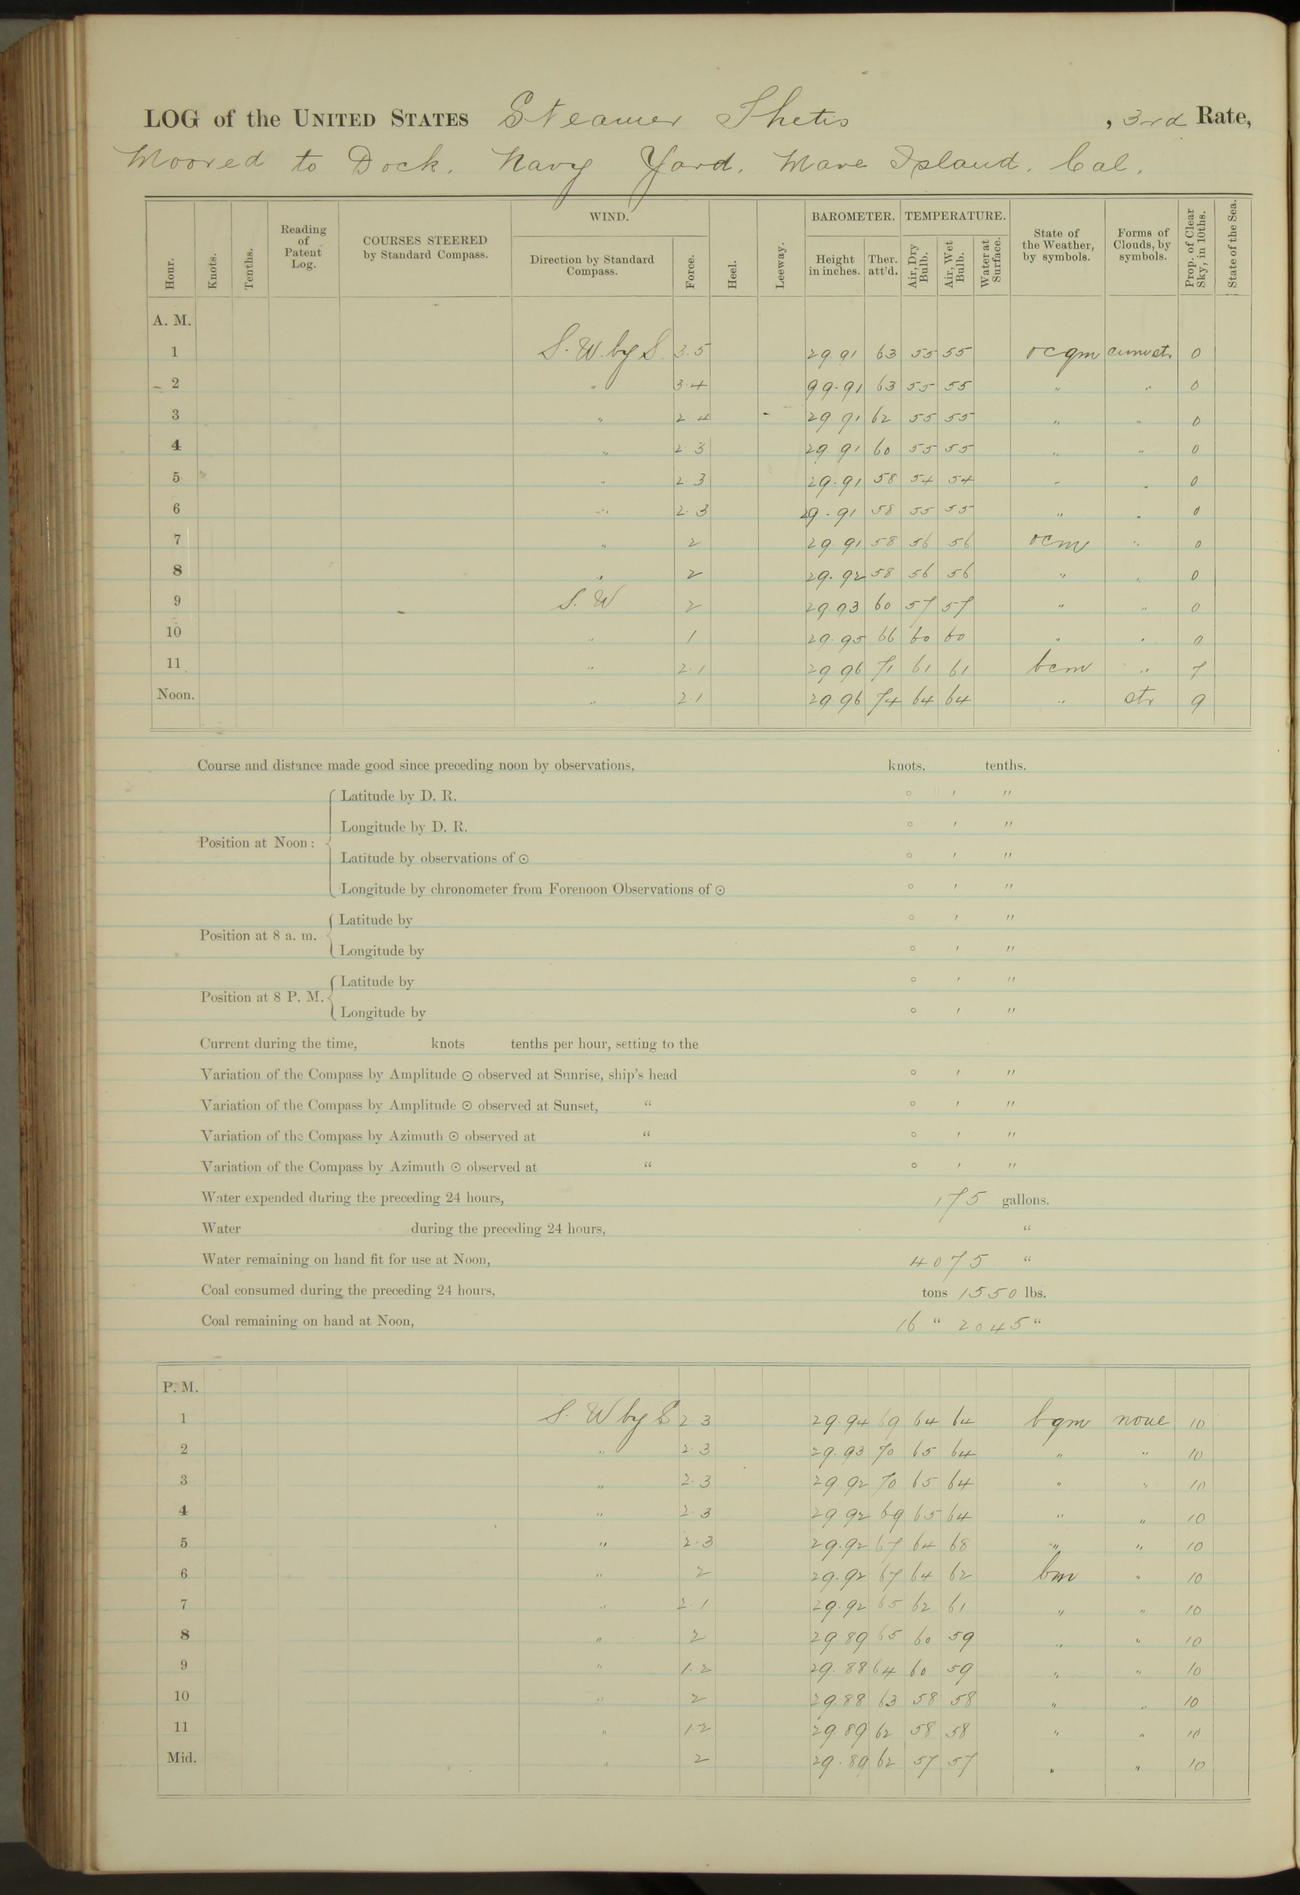 LOG of the UNITED STATES Steamer Thetis, 3rd Rate,
Moored to Dock. Navy Yard. Mare Island. Cal.
Hour. Knots. Tenths. Reading of Patent Log. COURSES STEERED by Standard Compass. WIND. Direction by Standard Compass. Force. Heel. Leeway. BAROMETER. Height in inches. Ther. att'd. TEMPERATURE. Air, Dry Bulb. Air, Wet Bulb. Water at Surface. State of the Weather, by symbols. Forms of Clouds, by symbols. Prop. of Clear Sky, in 10ths. State of the Sea.
A. M.
1 S. W. by S. 3.5 29 91 63 55 55 ocqm cumstr 0
2 " 3.4 99.91 63 55 55 " " 0
3 " 2 4 29 91 62 55 55 " " 0
4 " 2 3 29 91 60 55 55 " " 0
5 " 2 3 29.91 58 54 54 " " 0
6 " 2.3 29.91 58 55 55 " " 0
7 " 2 29 91 58 56 56 ocm " 0
8 " 2 29.92 58 56 56 " " 0
9 S. W 2 29 93 60 57 57 " " 0
10 " 1 29.95 66 60 60 " " 0
11 " 2.1 29 96 71 61 61 bcm " 7
Noon. " 2.1 29 96 74 64 64 " str 9
Course and distance made good since preceding noon by observations, knots. tenths.
Position at Noon: Latitude by D. R. ° ′ ″
Longitude by D. R. ° ′ ″
Latitude by observations of ⊙ ° ′ ″
Longitude by chronometer from Forenoon Observations of ⊙ ° ′ ″
Position at 8 a. m. Latitude by ° ′ ″
Longitude by ° ′ ″
Position at 8 P. M. Latitude by ° ′ ″
Longitude by ° ′ ″
Current during the time, knots tenths per hour, setting to the
Variation of the Compass by Amplitude ⊙ observed at Sunrise, ship's head ° ′ ″
Variation of the Compass by Amplitude ⊙ observed at Sunset, " ° ′ ″
Variation of the Compass by Azimuth ⊙ observed at " ° ′ ″
Variation of the Compass by Azimuth ⊙ observed at " ° ′ ″
Water expended during the preceding 24 hours, 175 gallons.
Water during the preceding 24 hours, "
Water remaining on hand fit for use at Noon, 4075 "
Coal consumed during the preceding 24 hours, tons 1550 lbs.
Coal remaining on hand at Noon, 16 " 2045 "
P. M.
1 S. W by S 2 3 29.94 69 64 64 bqm none 10
2 " 2.3 29.93 70 65 64 " " 10
3 " 2.3 29 92 70 65 64 " " 10
4 " 2 3 29.92 69 65 64 " " 10
5 " 2.3 29.92 67 64 68 " " 10
6 " 2 29.92 67 64 62 bm " 10
7 " 2.1 29.92 65 62 61 " " 10
8 " 2 29 89 65 60 59 " " 10
9 " 1.2 29.88 64 60 59 " " 10
10 " 2 29.88 63 58 58 " " 10
11 " 1 2 29.89 62 58 58 " " 10
Mid. " 2 29.89 62 57 57 " " 10